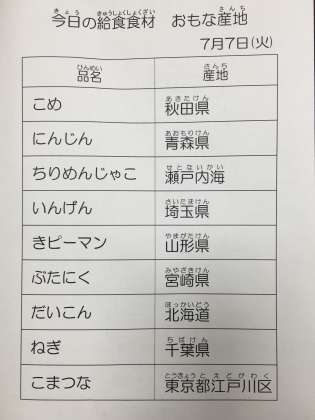 今日の給食食材　おもな産地
7月7日(火)
品名　産地
こめ　秋田県
にんじん　青森県
ちりめんじゃこ　瀬戸内海
いんげん　埼玉県
きピーマン　山形県
ぶたにく　宮崎県
だいこん　北海道
ねぎ　千葉県
こまつな　東京都江戸川区